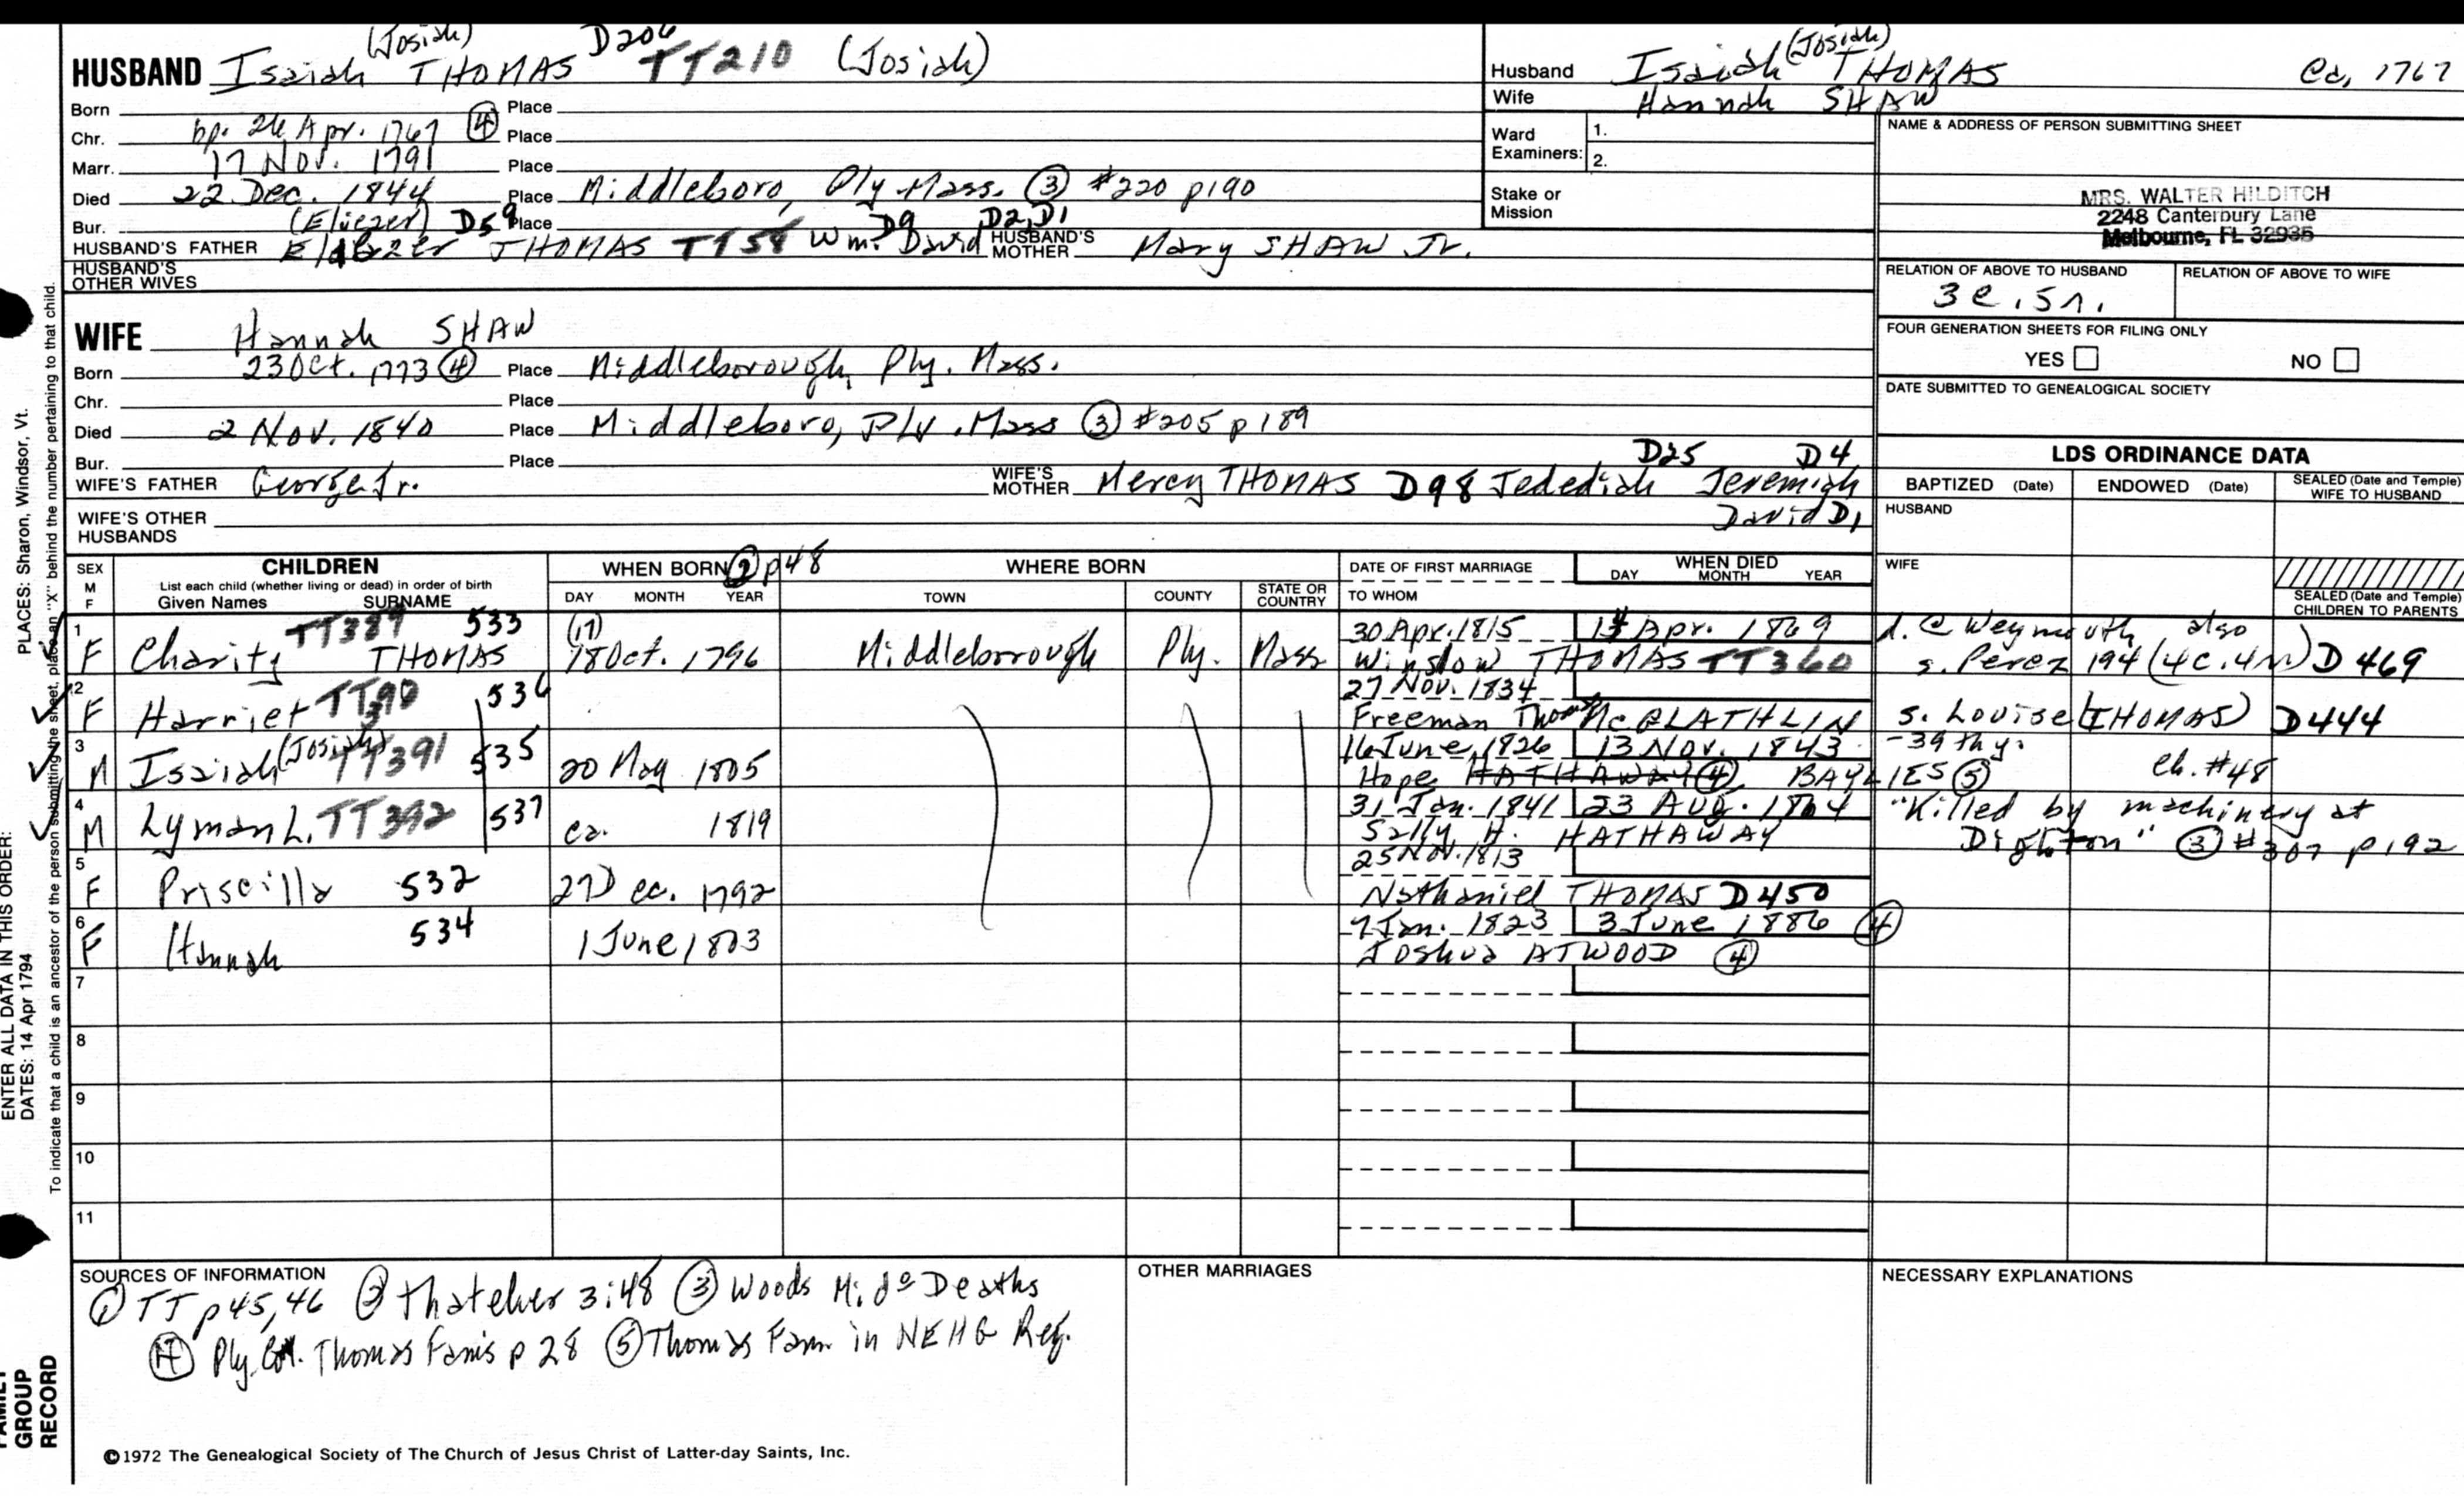 (Josiah) D206
HUSBAND Isaiah THOMAS TT210 (Josiah)
Born Place
Chr. bp. 26 Apr. 1767 (4) Place
Marr. 17 Nov. 1791 Place
Died 22 Dec. 1844 Place Middleboro, Ply. Mass. (3) #220 p190
Bur. (Eliezer) D59 Place D9 D2, D1
HUSBAND'S FATHER THOMAS TT58 Wm. David HUSBAND'S MOTHER Mary SHAW Jr.
HUSBAND'S OTHER WIVES
Husband Isaiah (Josiah) THOMAS Ca, 1767
Wife Hannah SHAW
Ward Examiners: 1.
2.
Stake or Mission
NAME & ADDRESS OF PERSON SUBMITTING SHEET
MRS. WALTER HILDITCH
2248 Canterbury Lane
Melbourne, FL 32935
RELATION OF ABOVE TO HUSBAND RELATION OF ABOVE TO WIFE
3c.5r.
FOUR GENERATION SHEETS FOR FILING ONLY
YES NO
DATE SUBMITTED TO GENEALOGICAL SOCIETY
WIFE Hannah SHAW
Born 23 Oct. 1773 (4) Place Middleborough, Ply. Mass.
Chr. Place
Died 2 Nov. 1840 Place Middleboro, Ply. Mass (3) #205 p189
Bur. Place D25 D4
WIFE'S FATHER George Jr. WIFE'S MOTHER Mercy THOMAS D98 Jedediah Jeremiah
WIFE'S OTHER HUSBANDS David D1
LDS ORDINANCE DATA
BAPTIZED (Date) ENDOWED (Date) SEALED (Date and Temple) WIFE TO HUSBAND
HUSBAND
WIFE
SEALED (Date and Temple) CHILDREN TO PARENTS
SEX M F CHILDREN WHEN BORN (2) p48 WHERE BORN DATE OF FIRST MARRIAGE WHEN DIED
List each child (whether living or dead) in order of birth
Given Names SURNAME DAY MONTH YEAR TOWN COUNTY STATE OR COUNTRY TO WHOM DAY MONTH YEAR
1 TT389 533 (17) 30 Apr. 1815 Apr. 1869 d. @ Weymouth also
F Charity THOMAS 18 Oct. 1796 Middleborough Ply. Mass Winslow THOMAS TT360 s. Perez 194 (4c.4r) D469
2 TT390 536 27 Nov. 1834
F Harriet Freeman Thomas McGLATHLIN s. Louise (THOMAS) D444
3 (Josiah) 16 June 1826 13 Nov. 1843 -39th y.
M Isaiah TT391 535 20 May 1805 Hope HATHAWAY (4) BAYLIES (5) ch. #48
4 31 Jan. 1841 23 AUG. 1864 "Killed by machinery at
M Lyman L. TT392 537 ca. 1819 Sally H. HATHAWAY Dighton" (3) #307 p192
5 25 Nov. 1813
F Priscilla 532 27 Dec. 1792 Nathaniel THOMAS D450
6 7 Jan. 1823 3 June 1886 (4)
F Hannah 534 1 June 1803 Joshua ATWOOD (4)
7
8
9
10
11
SOURCES OF INFORMATION
(1) TT p45,46 (2) Thatcher 3:48 (3) Woods Mido Deaths
(4) Ply. Col. Thomas Fams p 28 (5) Thomas Fam in NEHG Reg.
OTHER MARRIAGES
NECESSARY EXPLANATIONS
©1972 The Genealogical Society of The Church of Jesus Christ of Latter-day Saints, Inc.
PLACES: Sharon, Windsor, Vt.
ENTER ALL DATA IN THIS ORDER:
DATES: 14 Apr 1794
To indicate that a child is an ancestor of the person submitting the sheet, place an "X" behind the number pertaining to that child.
FAMILY GROUP RECORD